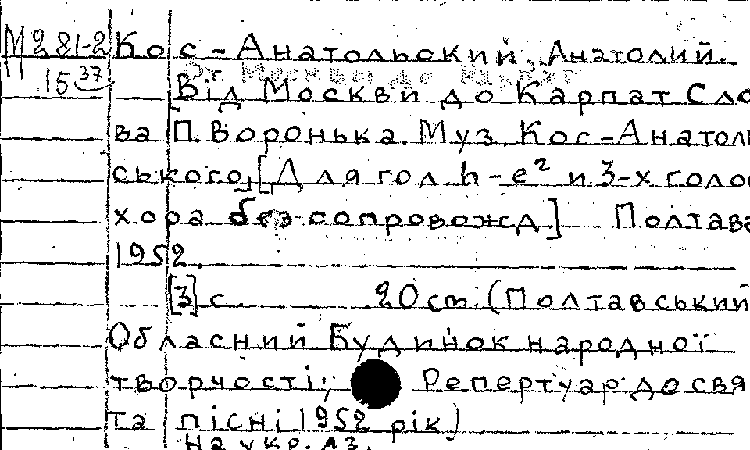 М281-2 Кос-Анатольский, Анатолий.
15 37
Від Москви до Карпат Сло
ва П. Воронька. Муз Кос-Анатоль
ського, [Для гол h-e² и 3-х голос
хора без сопровожд.] Полтава
1952.
[3] с. 20 cm (Полтавський
Обласний Будинок народної
творчості; Репертуар до свя
та пісні 1952 рік)
на укр. яз.